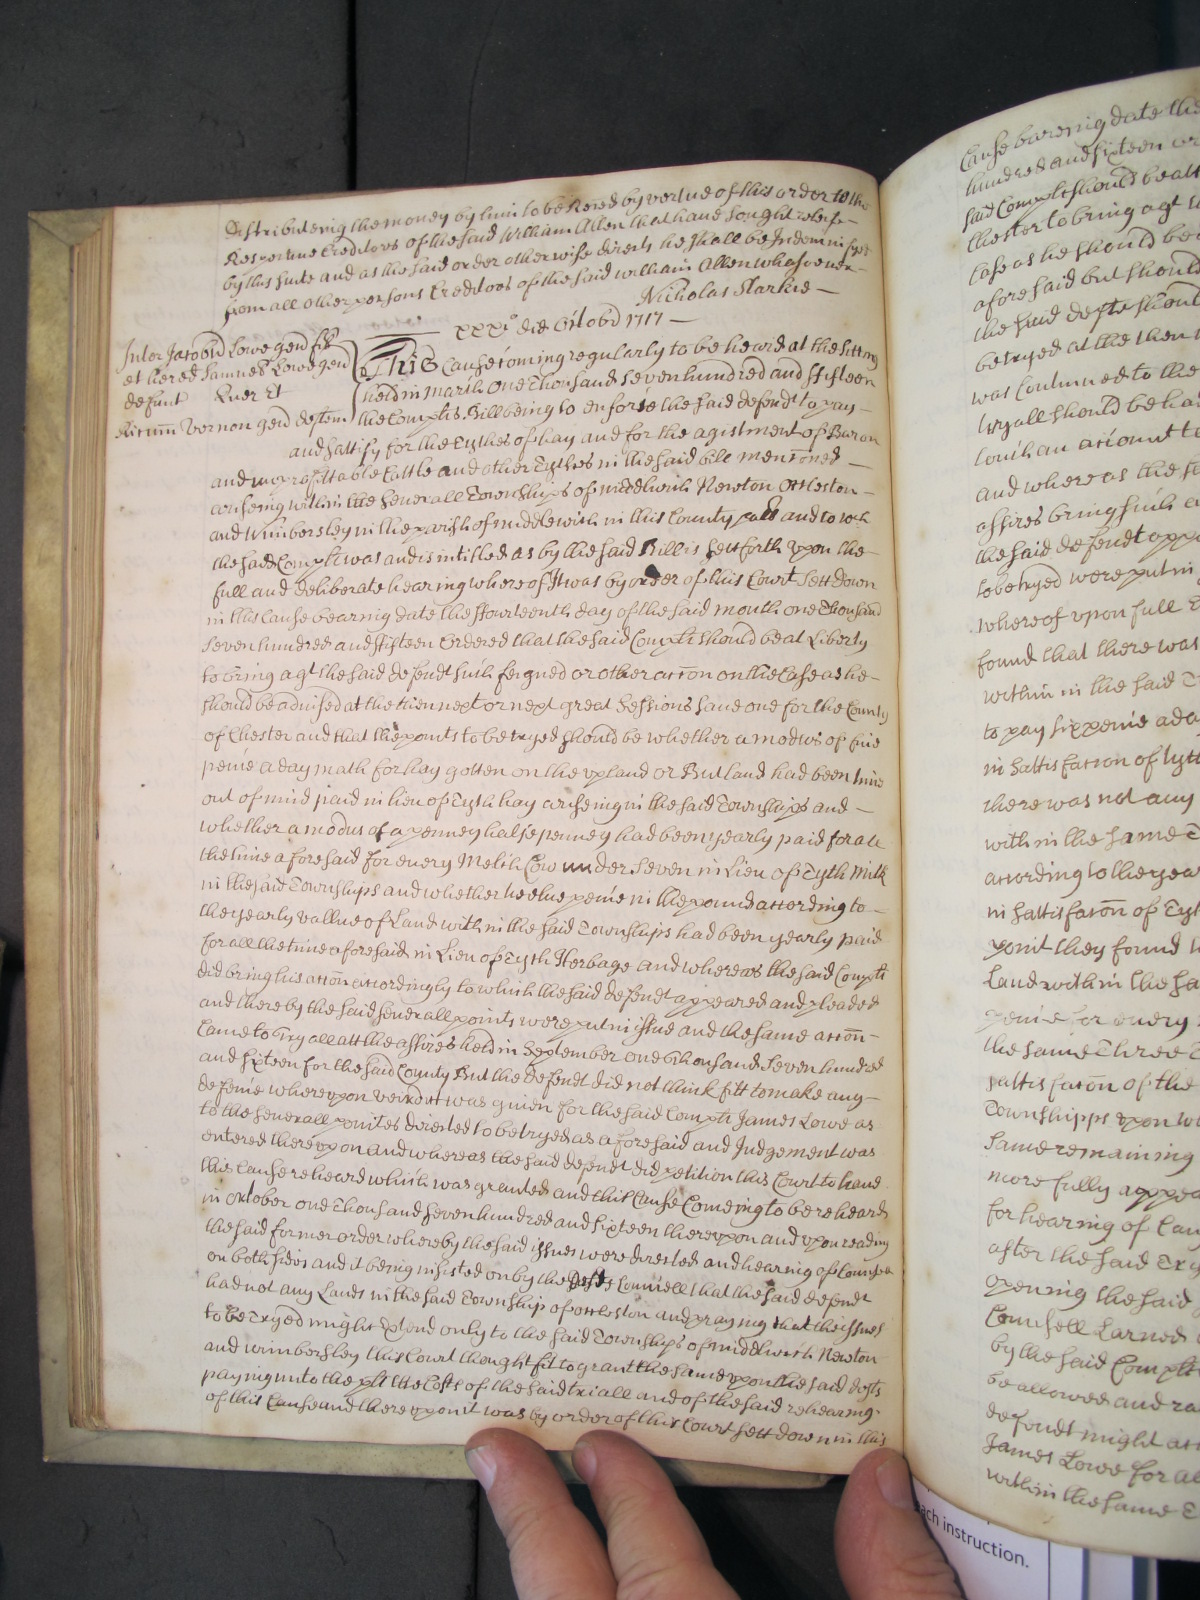 distributeing the money by him to be Rered by vertue of this order to the
Respective Creditors of the said William Allen that have sought releife
by this suite and as the said order otherwise directs he shall be Indemnifyed
from all other persons Creditors of the said William Allen whatsoever
Nicholas Starkie
xxxi° die Octobr 1717
Inter Jacobū Lowe gen fil
et hered Samuel Lowe gen
defunct Quer Et
Ricum Vernon gen deften
This Cause coming regularly to be heard at the sitting
held in march one Thousand seven hundred and ffifteen
the Complts Bill being to enforce the said defendt to pay
and sattisfy for the Tythes of hay and for the agistment of Baron
and unproffitable Cattle and other Tythes in the said bill mentoned
ariseing within the severall Townshipps of middlewich Newton Occleston
and Wimbersley in the parish of middlewich in this County pall and to wch
the said Complt was and is intitled as by the said Bill is sett forth upon the
full and deliberate hearing whereof It was by order of this Court sett down
in this Cause bearing date the ffourteenth day of the said month one Thousand
seven hundred and ffifteen Ordered that the said Complt should be at Liberty
to bring agt the said defendt such feigned or other action on the Case as he
should be advised at the then next or next great Sessions save one for the County
of Chester and that the points to be tryed should be whether a modus of five
pence a day math for hay gotten on the upland or But land had been time
out of mind paid in lieu of Tyth hay ariseing in the said Townshipps and
whether a modus of a penney halfe penney had been yearly paid for all
the time aforesaid for every Melch Cow under seven in Lieu of Tyth Milk
in the said Townshipps and whether twelve pence in the pound according to
the yearly vallue of Land within the said Townshipps had been yearly paid
for all the time aforesaid in Lieu of Tyth Herbage and whereas the said Complt
did bring his action accordingly to which the said defendt appeared and pleaded
and thereby the said severall points were put in issue and the same action
Came to Tryall att the assizes held in September one Thousand seven hundred
and sixteen for the said County But the defendt did not think fitt to make any
defence whereupon verdict was given for the said Complt James Lowe as
to the severall pointes directed to be tryed as aforesaid and Judgement was
entered thereupon and whereas the said defendt did petition this Court to have
this Cause reheard which was granted and this Cause Comeing to be reheard
in october one Thousand seven hundred and sixteen thereupon and upon reading
the said former order whereby the said issues were directed and hearing of Councell
on both sides and it being insisted on by the defts Councell that the said defendt
had not any Lands in the said Township of occleston and praying that the issues
to be Tryed might Extend only to the said Townships of middlewich Newton
and wimbersley this Court thought fit to grant the same upon the said defts
paying unto the plt the Costs of the said triall and of the said rehearing
of this Cause and thereupon it was by order of this Court sett down in this
Cause bareing date the
hundred and sixteen or
said Complt should be att
Chester to bring agt
Case as he should be
aforesaid but should
the said defte should
be tryed at the then
was Continued to the
tryall should be ha
touch an account to
and where as the s
assizes bring such a
the said defendt appe
to be tryed were put in
whereof upon full
found that there was
within in the said T
to pay six pence a da
in sattisfacon of tyth
there was not any
within the same T
according to the year
in sattisfacon of Tyt
point they found
Land within the sa
pence for every
the same Three
sattisfacon of the
Townshipps upon w
same remaining
more fully appea
for hearing of Cau
after the said Try
opening the said
Councell Larned
by the said Complt
be allowed and ra
defendt might acc
James Lowe for all
within the same T
ach instruction.